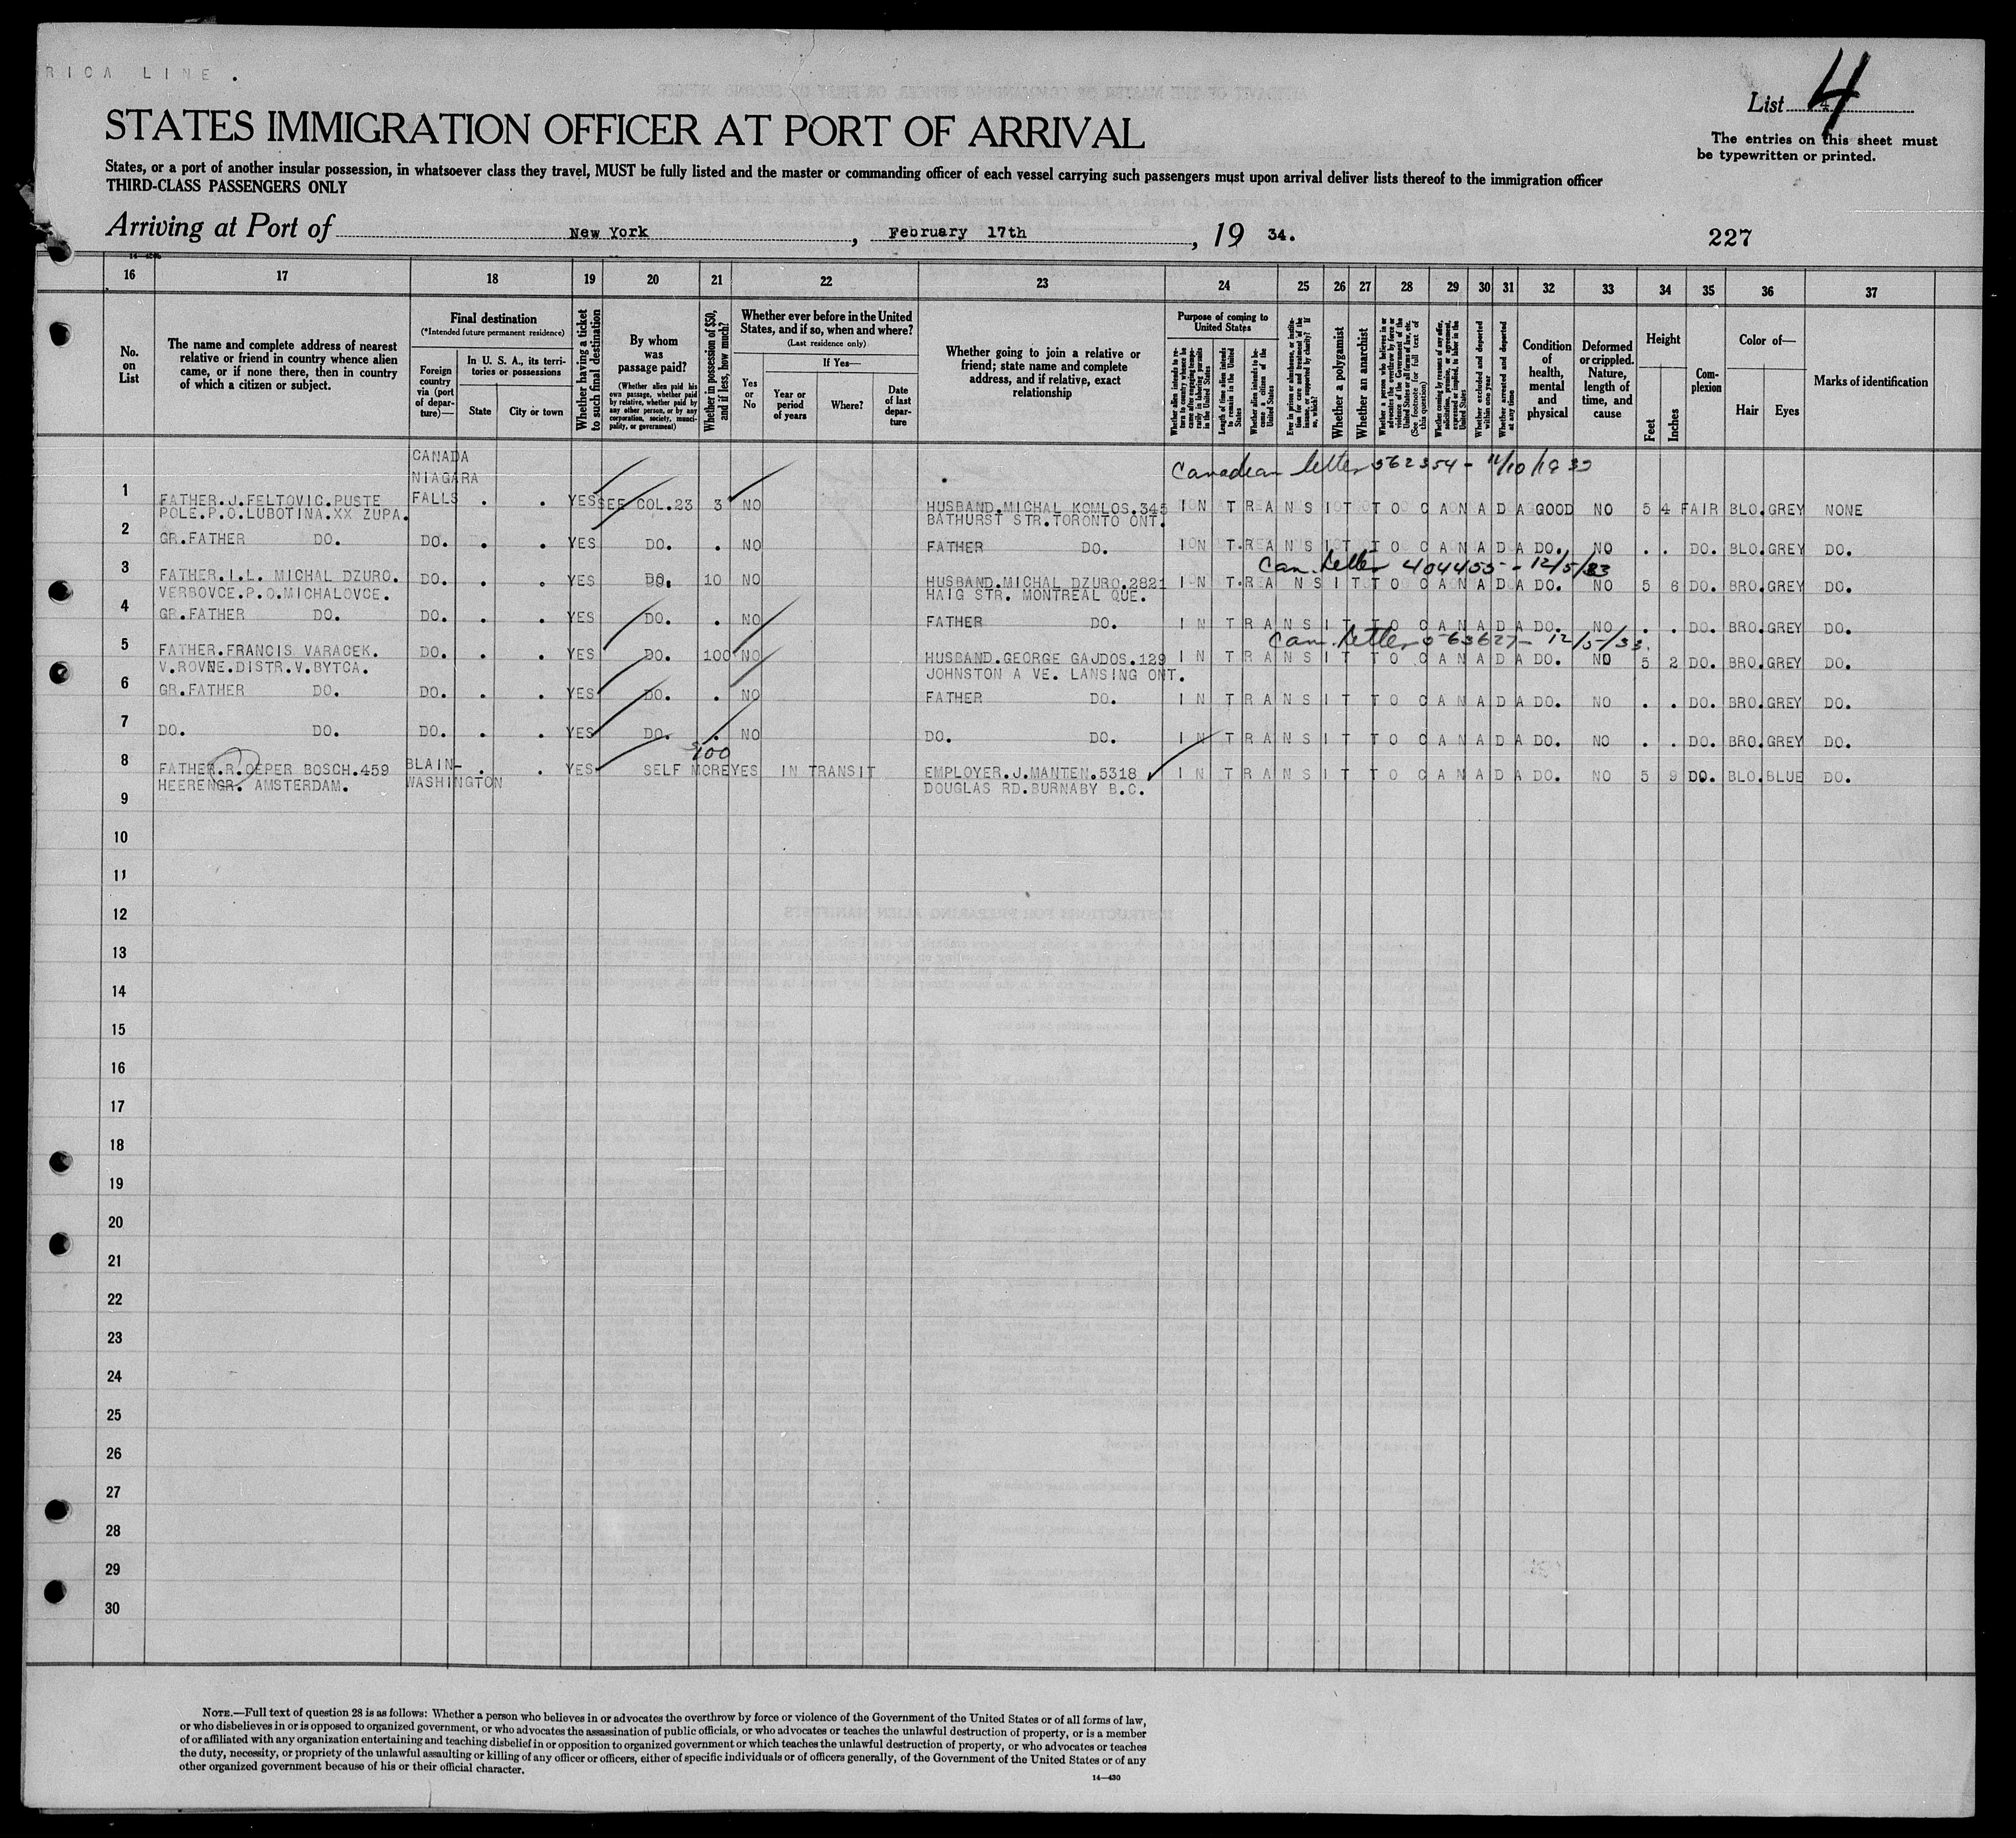 RICA LINE.
List 4
STATES IMMIGRATION OFFICER AT PORT OF ARRIVAL
The entries on this sheet must
be typewritten or printed.
States, or a port of another insular possession, in whatsoever class they travel, MUST be fully listed and the master or commanding officer of each vessel carrying such passengers must upon arrival deliver lists thereof to the immigration officer
THIRD-CLASS PASSENGERS ONLY
Arriving at Port of New York, February 17th, 19 34.
227
16 17 18 19 20 21 22 23 24 25 26 27 28 29 30 31 32 33 34 35 36 37
No. on List
The name and complete address of nearest relative or friend in country whence alien came, or if none there, then in country of which a citizen or subject.
Final destination
(*Intended future permanent residence)
Foreign country via (port of departure)—
In U. S. A., its territories or possessions
State
City or town
Whether having a ticket to such final destination
By whom was passage paid?
(Whether alien paid his own passage, whether paid by relative, whether paid by any other person, or by any corporation, society, municipality, or government)
Whether in possession of $50, and if less, how much?
Whether ever before in the United States, and if so, when and where?
(Last residence only)
Yes or No
If Yes—
Year or period of years
Where?
Date of last departure
Whether going to join a relative or friend; state name and complete address, and if relative, exact relationship
Purpose of coming to United States
Whether alien intends to return to country whence he came after engaging temporarily in laboring pursuits in the United States
Length of time alien intends to remain in the United States
Whether alien intends to become a citizen of the United States
Ever in prison or almshouse, or institution for care and treatment of the insane, or supported by charity? If so, which?
Whether a polygamist
Whether an anarchist
Whether a person who believes in or advocates the overthrow by force or violence of the Government of the United States or all forms of law, etc. (See footnote for full text of this question)
Whether coming by reasons of any offer, solicitation, promise, or agreement, expressed or implied, to labor in the United States
Whether excluded and deported within one year
Whether arrested and deported at any time
Condition of health, mental and physical
Deformed or crippled. Nature, length of time, and cause
Height
Feet
Inches
Complexion
Color of—
Hair
Eyes
Marks of identification
CANADA
NIAGARA
Canadian letter 562354 - 11/10/1933
1 FATHER.J.FELTOVIC.PUSTE FALLS . . YES SEE COL.23 3 NO HUSBAND.MICHAL KOMLOS.345 IN TRANSIT TO CANADA GOOD NO 5 4 FAIR BLO.GREY NONE
POLE.P.O.LUBOTINA.XX ZUPA. BATHURST STR.TORONTO ONT.
2 GR.FATHER DO. DO. . . YES DO. . NO FATHER DO. IN TRANSIT TO CANADA DO. NO . . DO. BLO.GREY DO.
Can. letter 404455 - 12/5/33
3 FATHER.I.L. MICHAL DZURO. DO. . . YES DO. 10 NO HUSBAND.MICHAL DZURO.2821 IN TRANSIT TO CANADA DO. NO 5 6 DO. BRO.GREY DO.
VERBOVCE.P.O.MICHALOVCE. HAIG STR. MONTREAL QUE.
4 GR.FATHER DO. DO. . . YES DO. . NO FATHER DO. IN TRANSIT TO CANADA DO. NO . . DO. BRO.GREY DO.
Can. letter 563627 - 12/5/33.
5 FATHER.FRANCIS VARACEK. DO. . . YES DO. 100 NO HUSBAND.GEORGE GAJDOS.129 IN TRANSIT TO CANADA DO. NO 5 2 DO. BRO.GREY DO.
V.ROVNE.DISTR.V.BYTCA. JOHNSTON A VE. LANSING ONT.
6 GR.FATHER DO. DO. . . YES DO. . NO FATHER DO. IN TRANSIT TO CANADA DO. NO . . DO. BRO.GREY DO.
7 DO. DO. DO. . . YES DO. . NO DO. DO. IN TRANSIT TO CANADA DO. NO . . DO. BRO.GREY DO.
$100
8 FATHER.R.OEPER BOSCH.459 BLAIN- . . YES SELF MORE YES IN TRANSIT EMPLOYER.J.MANTEN.5318 IN TRANSIT TO CANADA DO. NO 5 9 DO. BLO.BLUE DO.
HEERENGR. AMSTERDAM. WASHINGTON DOUGLAS RD.BURNABY B.C.
9
10
11
12
13
14
15
16
17
18
19
20
21
22
23
24
25
26
27
28
29
30
NOTE.—Full text of question 28 is as follows: Whether a person who believes in or advocates the overthrow by force or violence of the Government of the United States or of all forms of law,
or who disbelieves in or is opposed to organized government, or who advocates the assassination of public officials, or who advocates or teaches the unlawful destruction of property, or is a member
of or affiliated with any organization entertaining and teaching disbelief in or opposition to organized government or which teaches the unlawful destruction of property, or who advocates or teaches
the duty, necessity, or propriety of the unlawful assaulting or killing of any officer or officers, either of specific individuals or of officers generally, of the Government of the United States or of any
other organized government because of his or their official character.
14—430